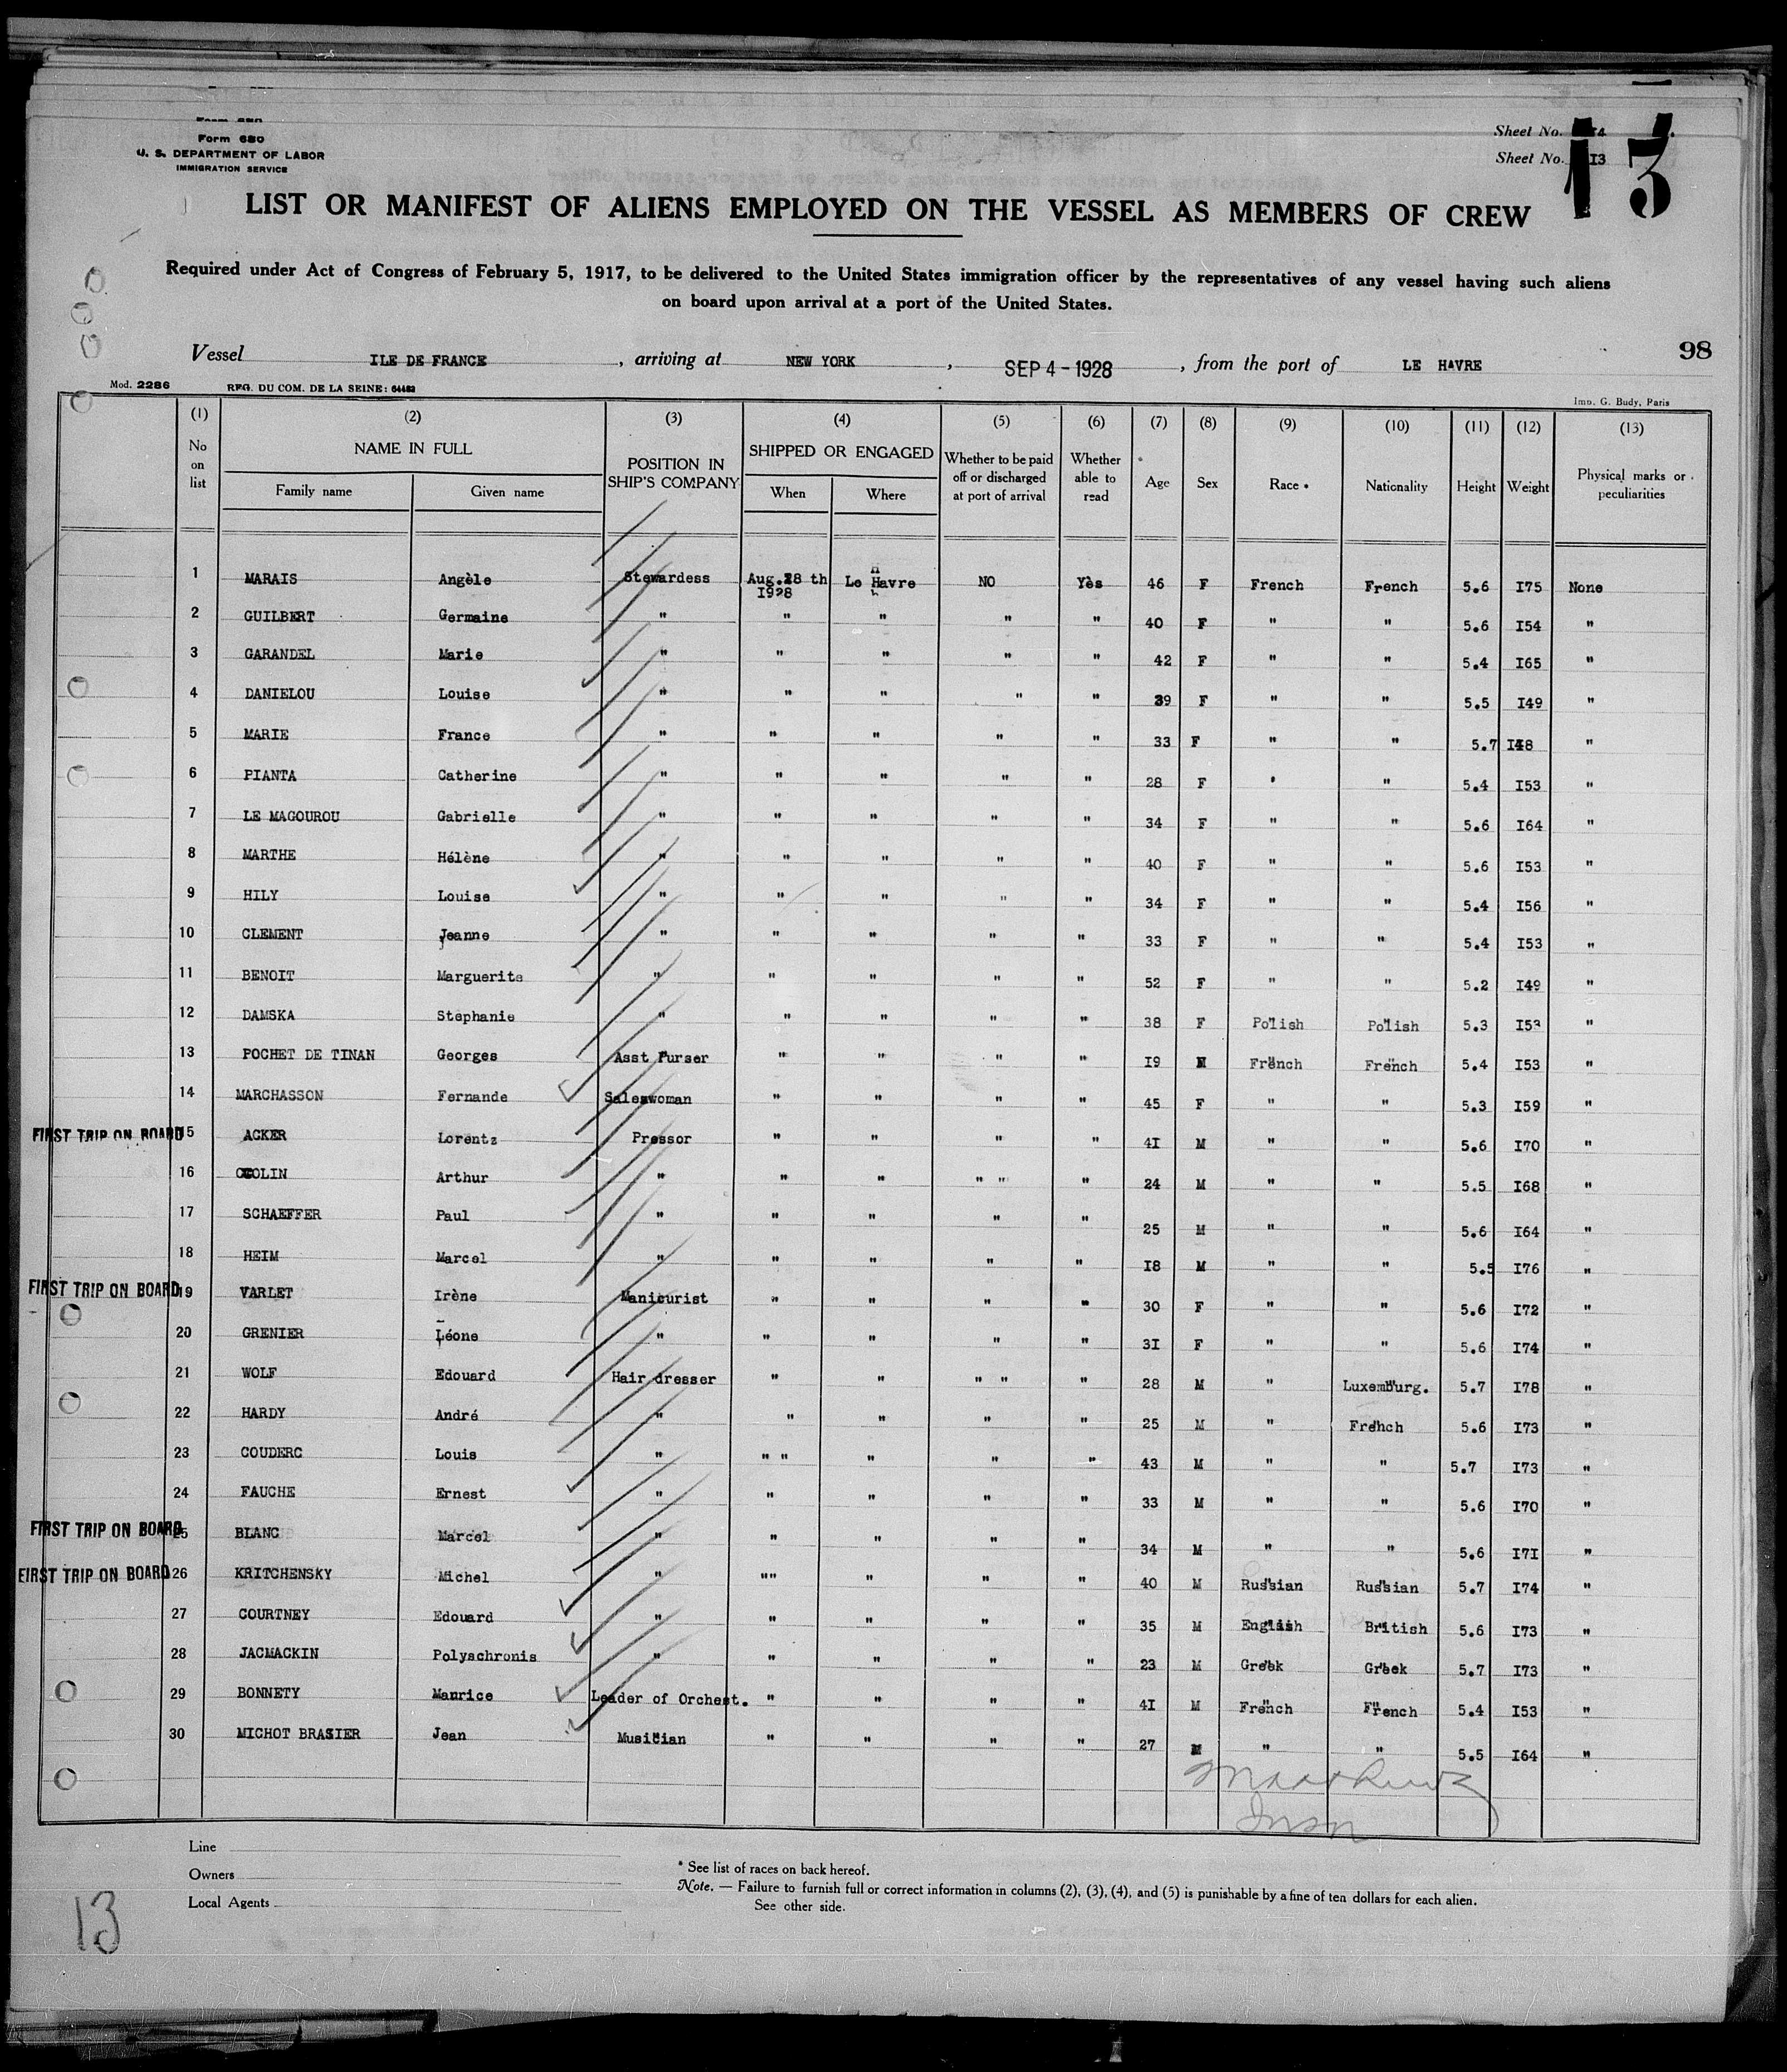 Form 680
U. S. DEPARTMENT OF LABOR
IMMIGRATION SERVICE
Sheet No.
Sheet No. I3
13
LIST OR MANIFEST OF ALIENS EMPLOYED ON THE VESSEL AS MEMBERS OF CREW
Required under Act of Congress of February 5, 1917, to be delivered to the United States immigration officer by the representatives of any vessel having such aliens
on board upon arrival at a port of the United States.
98
Vessel ILE DE FRANCE , arriving at NEW YORK , SEP 4 - 1928 , from the port of LE HAVRE
Mod. 2286 REG. DU COM. DE LA SEINE: 64482 Imp. G. Budy, Paris
(1) (2) (3) (4) (5) (6) (7) (8) (9) (10) (11) (12) (13)
No on list NAME IN FULL Family name Given name POSITION IN SHIP'S COMPANY SHIPPED OR ENGAGED When Where Whether to be paid off or discharged at port of arrival Whether able to read Age Sex Race * Nationality Height Weight Physical marks or peculiarities
1 MARAIS Angèle Stewardess Aug.28 th 1928 Le Havre NO Yès 46 F French French 5.6 I75 None
2 GUILBERT Germaine " " " " " 40 F " " 5.6 I54 "
3 GARANDEL Marie " " " " " 42 F " " 5.4 I65 "
4 DANIELOU Louise " " " " " 39 F " " 5.5 I49 "
5 MARIE France " " " " " 33 F " " 5.7 I48 "
6 PIANTA Catherine " " " " " 28 F " " 5.4 I53 "
7 LE MAGOUROU Gabrielle " " " " " 34 F " " 5.6 I64 "
8 MARTHE Hélène " " " " " 40 F " " 5.6 I53 "
9 HILY Louise " " " " " 34 F " " 5.4 I56 "
10 CLEMENT Jeanne " " " " " 33 F " " 5.4 I53 "
11 BENOIT Marguerite " " " " " 52 F " " 5.2 I49 "
12 DAMSKA Stéphanie " " " " " 38 F Polish Polish 5.3 I53 "
13 POCHET DE TINAN Georges Asst Purser " " " " I9 M French French 5.4 I53 "
14 MARCHASSON Fernande Saleswoman " " " " 45 F " " 5.3 I59 "
FIRST TRIP ON BOARD 15 ACKER Lorentz Pressor " " " " 4I M " " 5.6 I70 "
16 COLIN Arthur " " " " " " 24 M " " 5.5 I68 "
17 SCHAEFFER Paul " " " " " 25 M " " 5.6 I64 "
18 HEIM Marcel " " " " " I8 M " " 5.5 I76 "
FIRST TRIP ON BOARD 19 VARLET Irène Manicurist " " " " 30 F " " 5.6 I72 "
20 GRENIER Léone " " " " " 3I F " " 5.6 I74 "
21 WOLF Edouard Hair dresser " " " " " 28 M " Luxemburg. 5.7 I78 "
22 HARDY André " " " " " 25 M " French 5.6 I73 "
23 COUDERC Louis " " " " " " 43 M " " 5.7 I73 "
24 FAUCHE Ernest " " " " " 33 M " " 5.6 I70 "
FIRST TRIP ON BOARD 25 BLANC Marcel " " " " " 34 M " " 5.6 I7I "
FIRST TRIP ON BOARD 26 KRITCHENSKY Michel " "" " " " 40 M Russian Russian 5.7 I74 "
27 COURTNEY Edouard " " " " " 35 M English British 5.6 I73 "
28 JACMACKIN Polyschronis " " " " " 23 M Greek Greek 5.7 I73 "
29 BONNETY Maurice Leader of Orchest. " " " " 4I M French French 5.4 I53 "
30 MICHOT BRASIER Jean Musician " " " " 27 M " " 5.5 I64 "
Line
Owners
Local Agents
* See list of races on back hereof.
Note. — Failure to furnish full or correct information in columns (2), (3), (4), and (5) is punishable by a fine of ten dollars for each alien.
See other side.
13